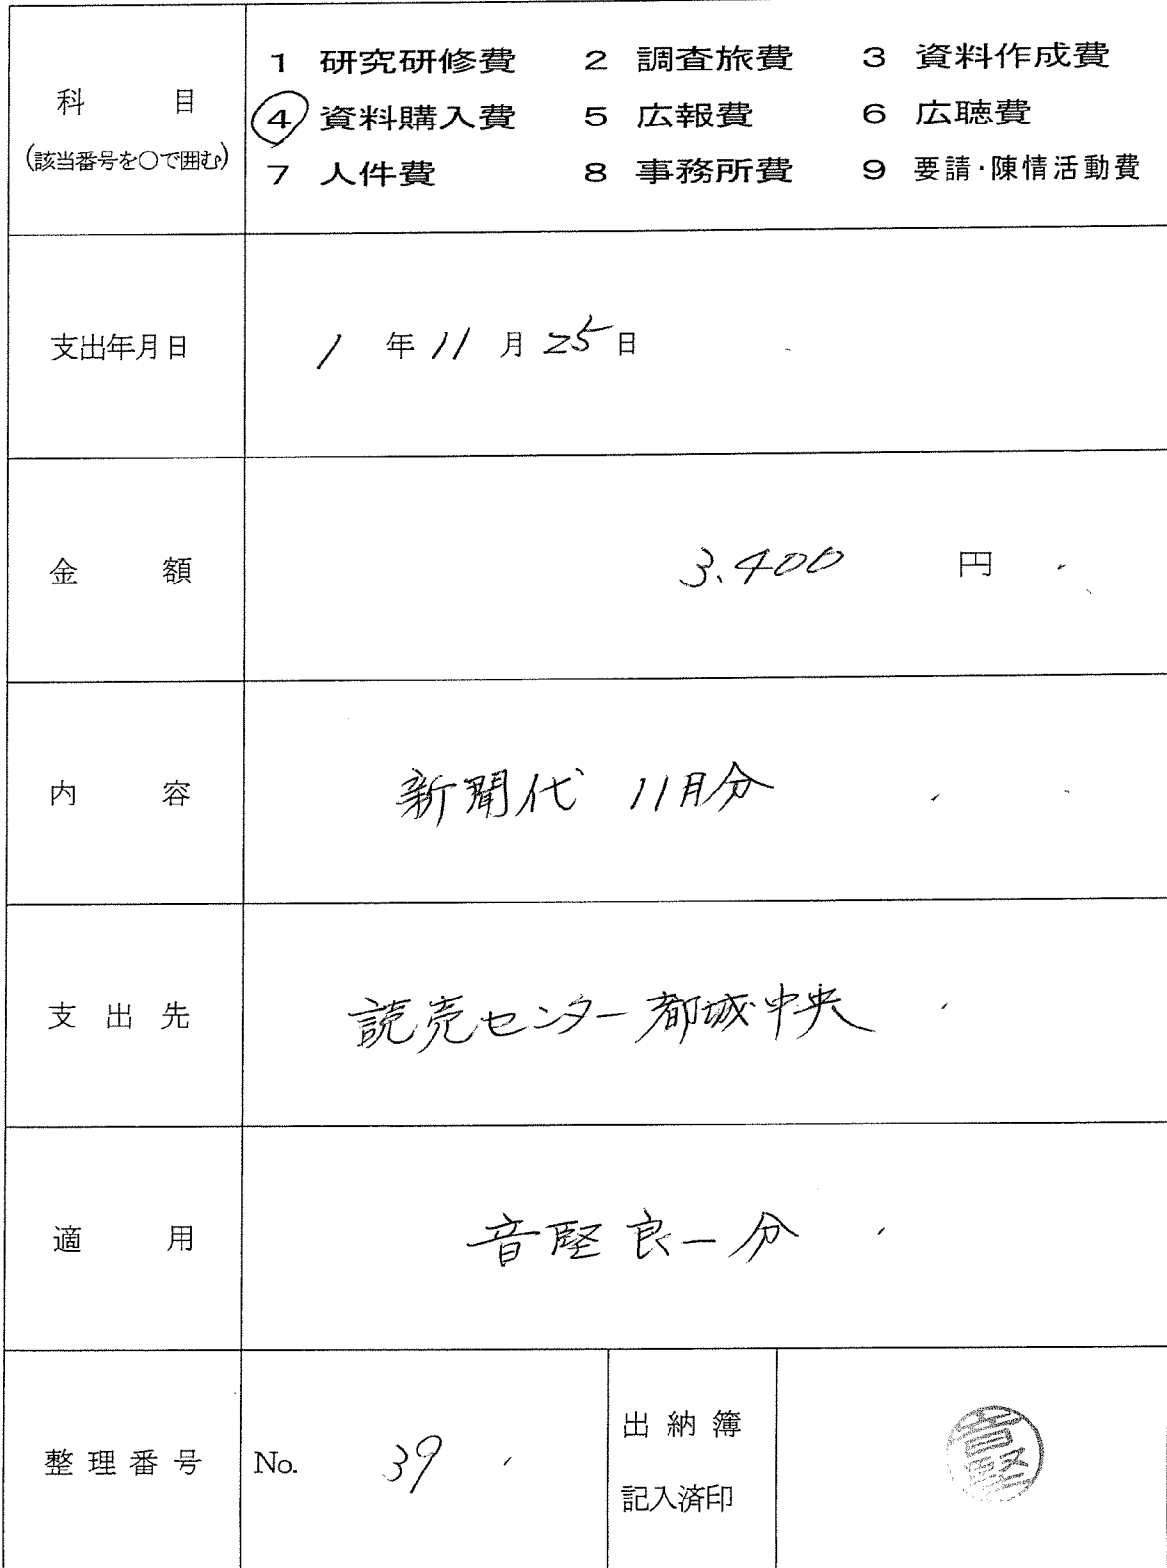 科 目
(該当番号を○で囲む)
1 研究研修費 2 調査旅費 3 資料作成費
4 資料購入費 5 広報費 6 広聴費
7 人件費 8 事務所費 9 要請・陳情活動費
支出年月日
1 年 11 月 25 日
金 額
3.400 円
内 容
新聞代 11月分
支 出 先
読売センター都城中央
適 用
音堅良一分
整理番号
No. 39
出 納 簿
記入済印
音堅